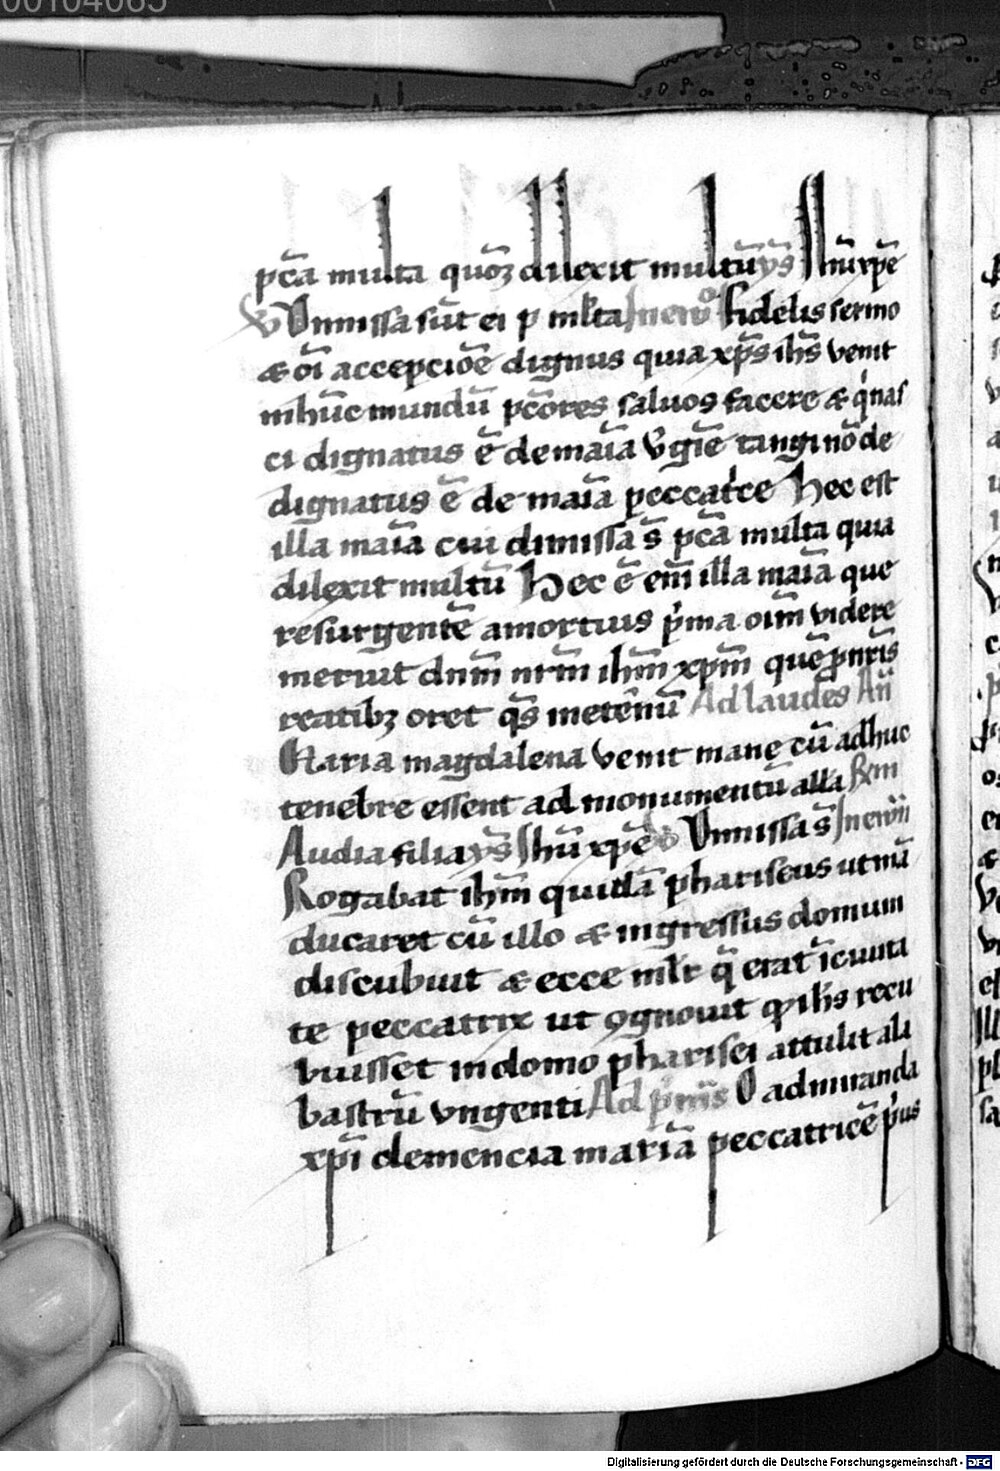 00104065
pc̄a multa quoꝫ dilexit multū ys Ihū xp̄e
V Dimissa sūt ei p ml̅ta In eiō Fidelis sermo
& oī accepcioē dignus quia xp̄s ih̄s venit
in hūc mundū pc̄ores saluos facere & q̇ nas
ci dignatus ē de maīa v̄gīe tangi nō de
dignatus ē de maīa peccat̓ce Hec est
illa maīa cui dimissa s̄ pc̄a multa quia
dilexit multū Hec ē em̄ illa maīa que
resurgentē a mortuis p̓ma oīm videre
meruit dn̄m nr̄m ih̄m xp̄m quē p nr̄is
reatibꝫ oret q̄s Ad laudes An̄
Maria magdalena venit mane cū adhuc
tenebre essent ad monumentū alla
Audi a filia ys Ihū xp̄e V Dimissa s̄ In ewn̄
Rogabat ih̄m quidā phariseus ut mā
ducaret cū illo & ingressus domum
discubuit & ecce ml̅r q̄ erat ī ciuita
te peccatrix ut ꝯgnouit ꝙ ih̄s recu
buisset in domo pharisei attulit ali
bastrū vngenti Ad p̓mās O admiranda
xp̄i clemencia mariā peccatricē p̓us
Digitalisierung gefördert durch die Deutsche Forschungsgemeinschaft - DFG